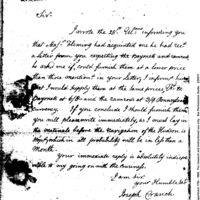 Sir.
I wrote the 28th Feby informing you
that Majr Fleming had acquainted me he had recd
a Letter from you respecting the Bayonets and Camerads he
asked me if I could furnish them at a lower price
than those mentioned in your Letter, I informed him
that I would supply them at the same price, The
Bayonets at 6/8 and the camerads at 3/9 Pennsylvania
Currency. If you conclude I should furnish them
you will please write immediately, as I must lay in
the materials before the Navigation of the Hudson is
shut, which in all probability will be in less than a
Month.
Your immediate reply is absolutely indispen
sable to my going on with the business.
I am Sir
your Humble Sert
Joseph Cranch